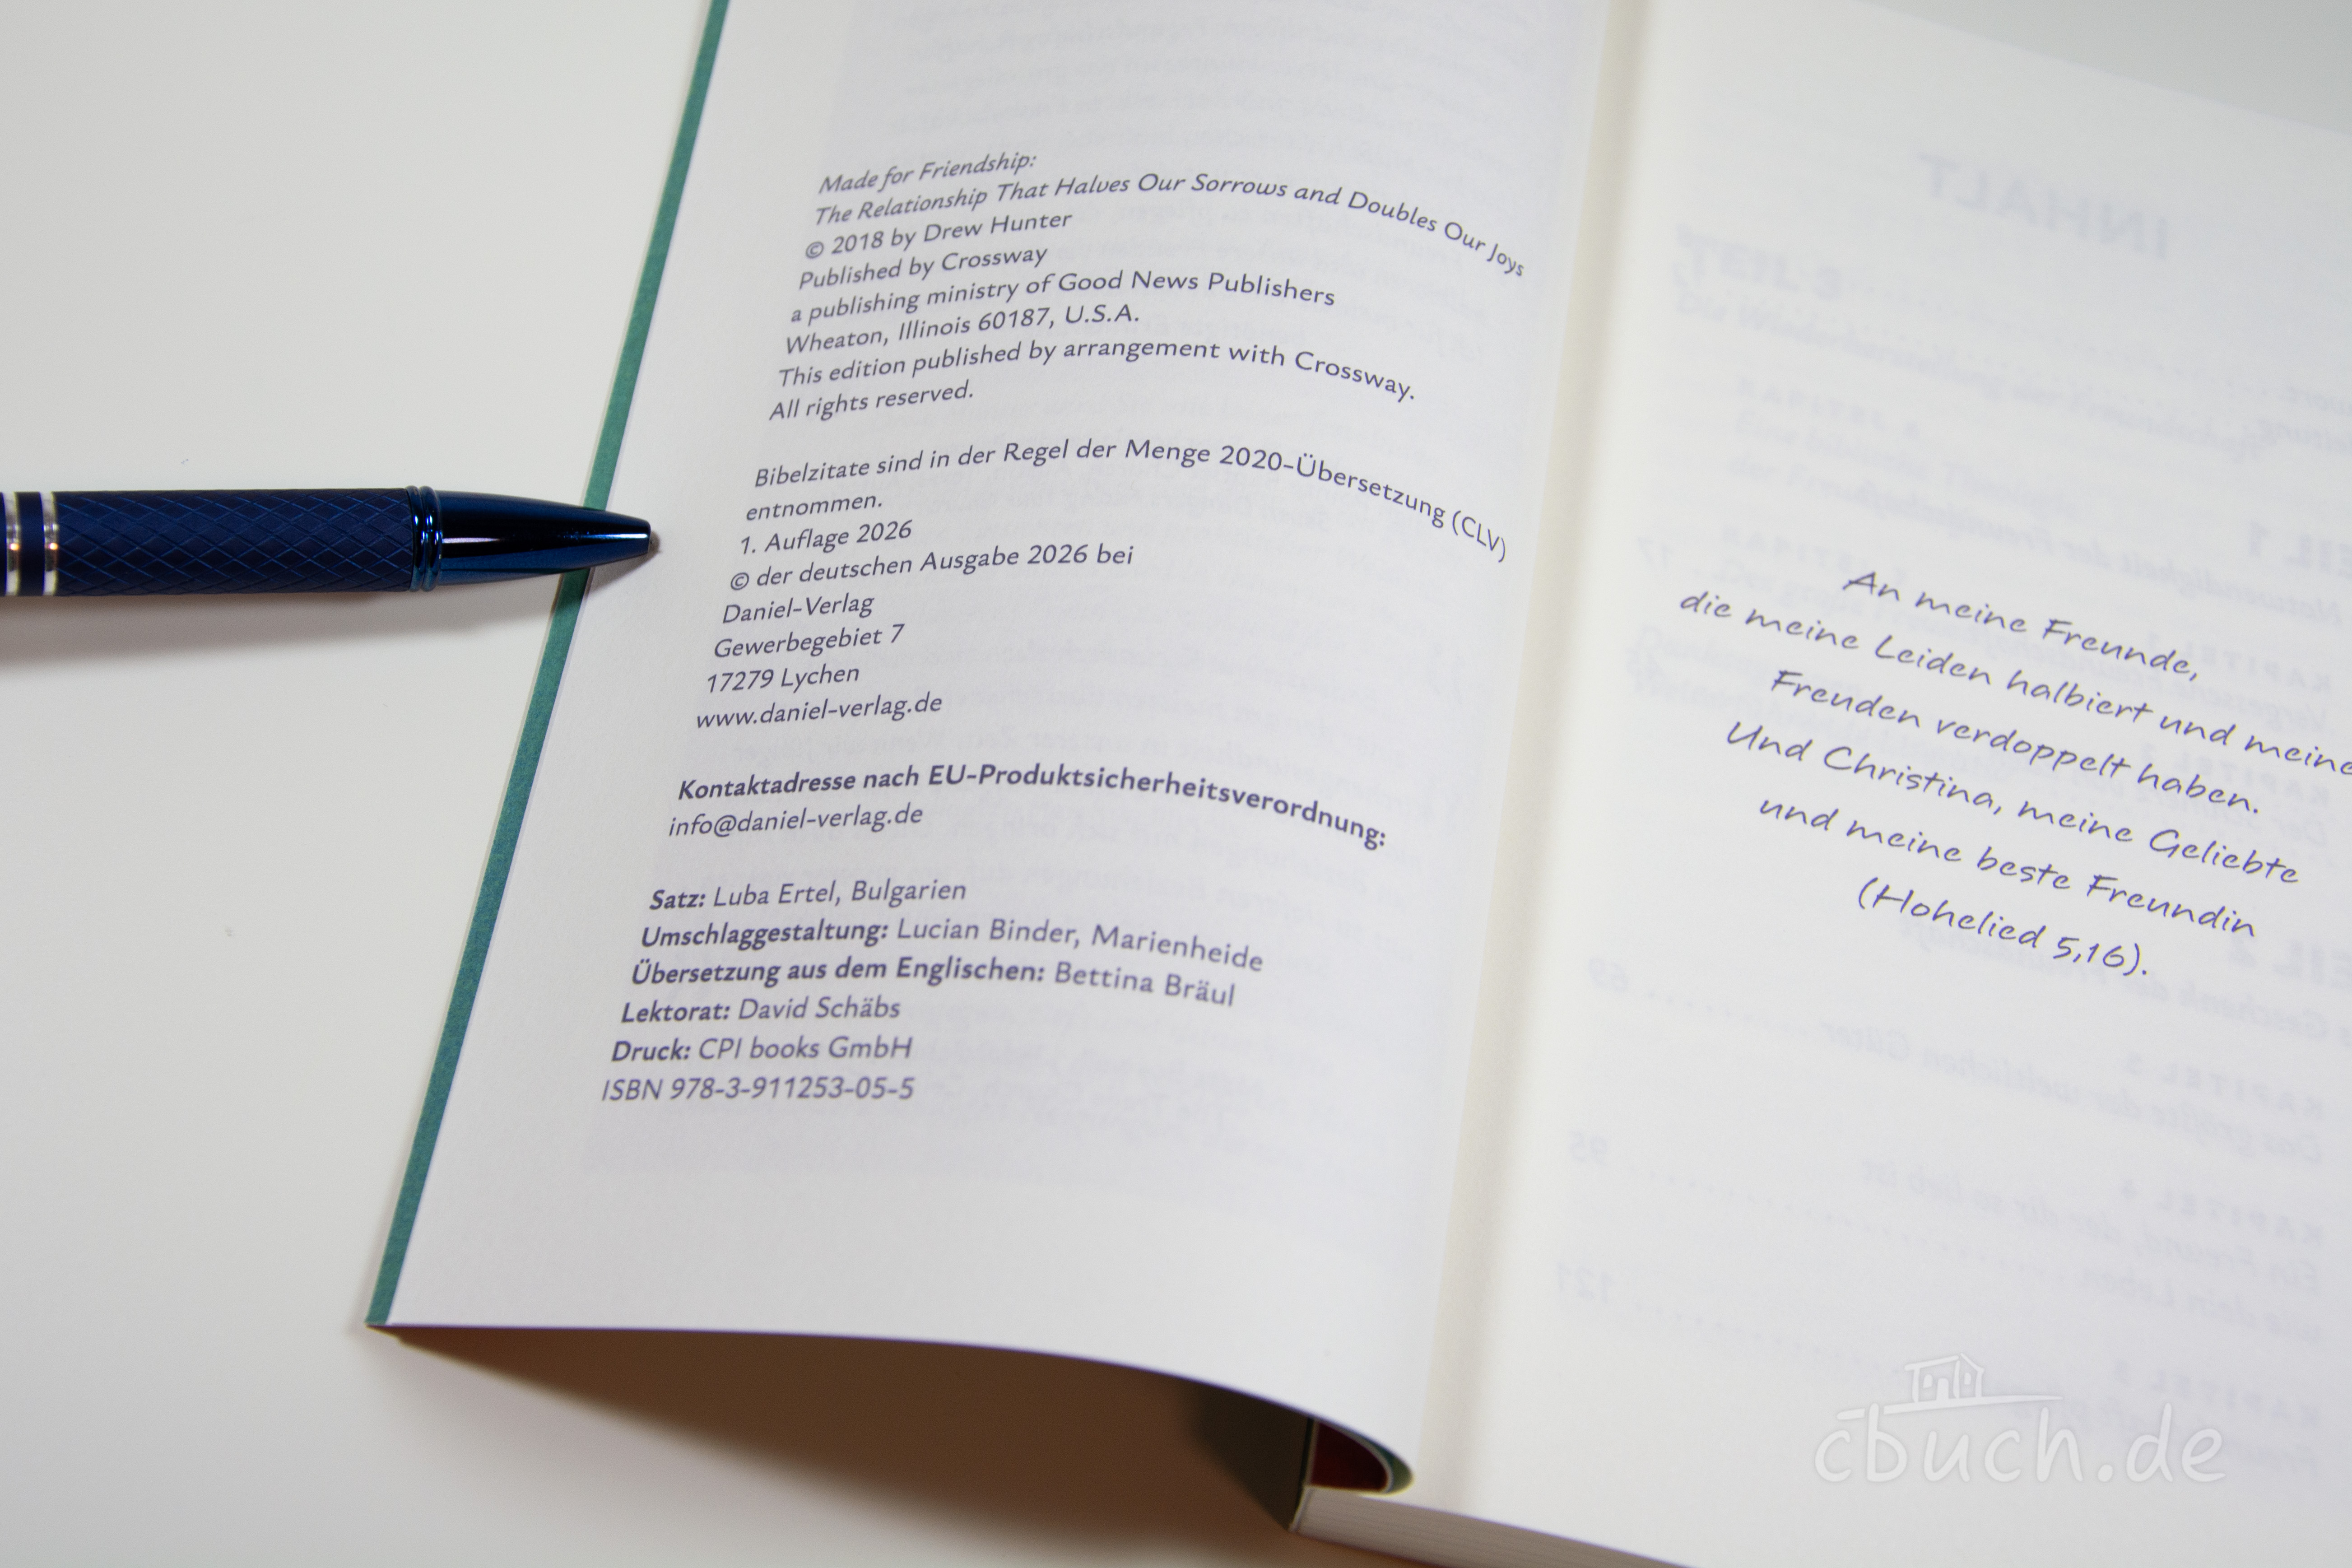 Made for Friendship:
The Relationship That Halves Our Sorrows and Doubles Our Joys
© 2018 by Drew Hunter
Published by Crossway
a publishing ministry of Good News Publishers
Wheaton, Illinois 60187, U.S.A.
This edition published by arrangement with Crossway.
All rights reserved.
Bibelzitate sind in der Regel der Menge 2020-Übersetzung (CLV)
entnommen.
1. Auflage 2026
© der deutschen Ausgabe 2026 bei
Daniel-Verlag
Gewerbegebiet 7
17279 Lychen
www.daniel-verlag.de
Kontaktadresse nach EU-Produktsicherheitsverordnung:
info@daniel-verlag.de
Satz: Luba Ertel, Bulgarien
Umschlaggestaltung: Lucian Binder, Marienheide
Übersetzung aus dem Englischen: Bettina Bräul
Lektorat: David Schäbs
Druck: CPI books GmbH
ISBN 978-3-911253-05-5
An meine Freunde,
die meine Leiden halbiert und meine
Freuden verdoppelt haben.
Und Christina, meine Geliebte
und meine beste Freundin
(Hohelied 5,16).
cbuch.de